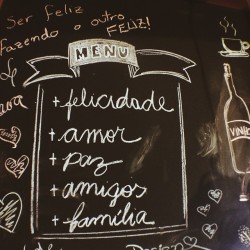 Ser feliz
fazendo o outro
FELIZ!
MENU
+felicidade
+amor
+paz
+amigos
+família
VINHO